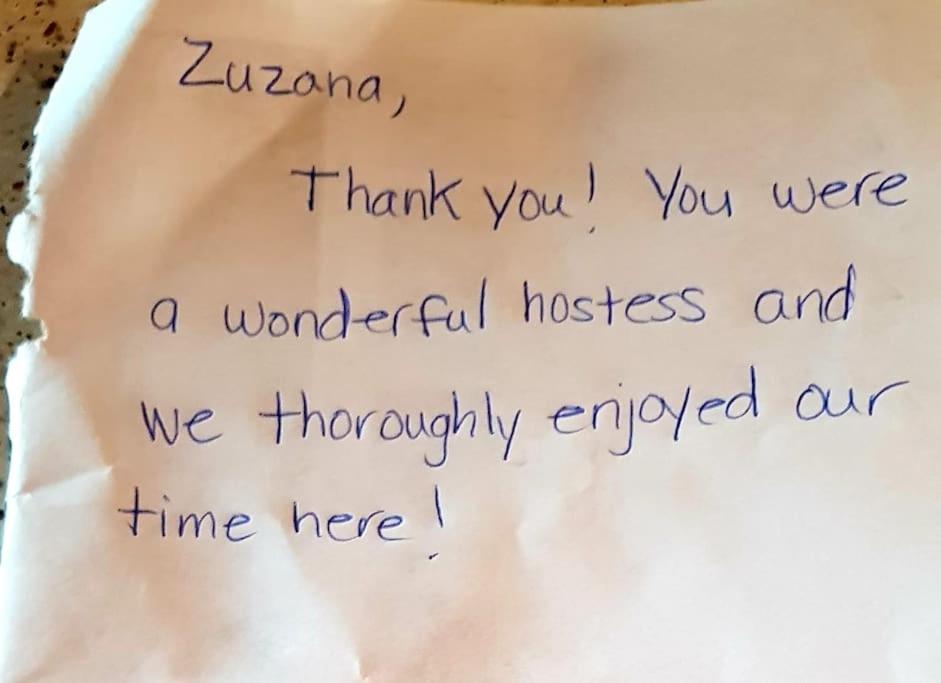 Zuzana,
Thank you! You were
a wonderful hostess and
we thoroughly enjoyed our
time here!